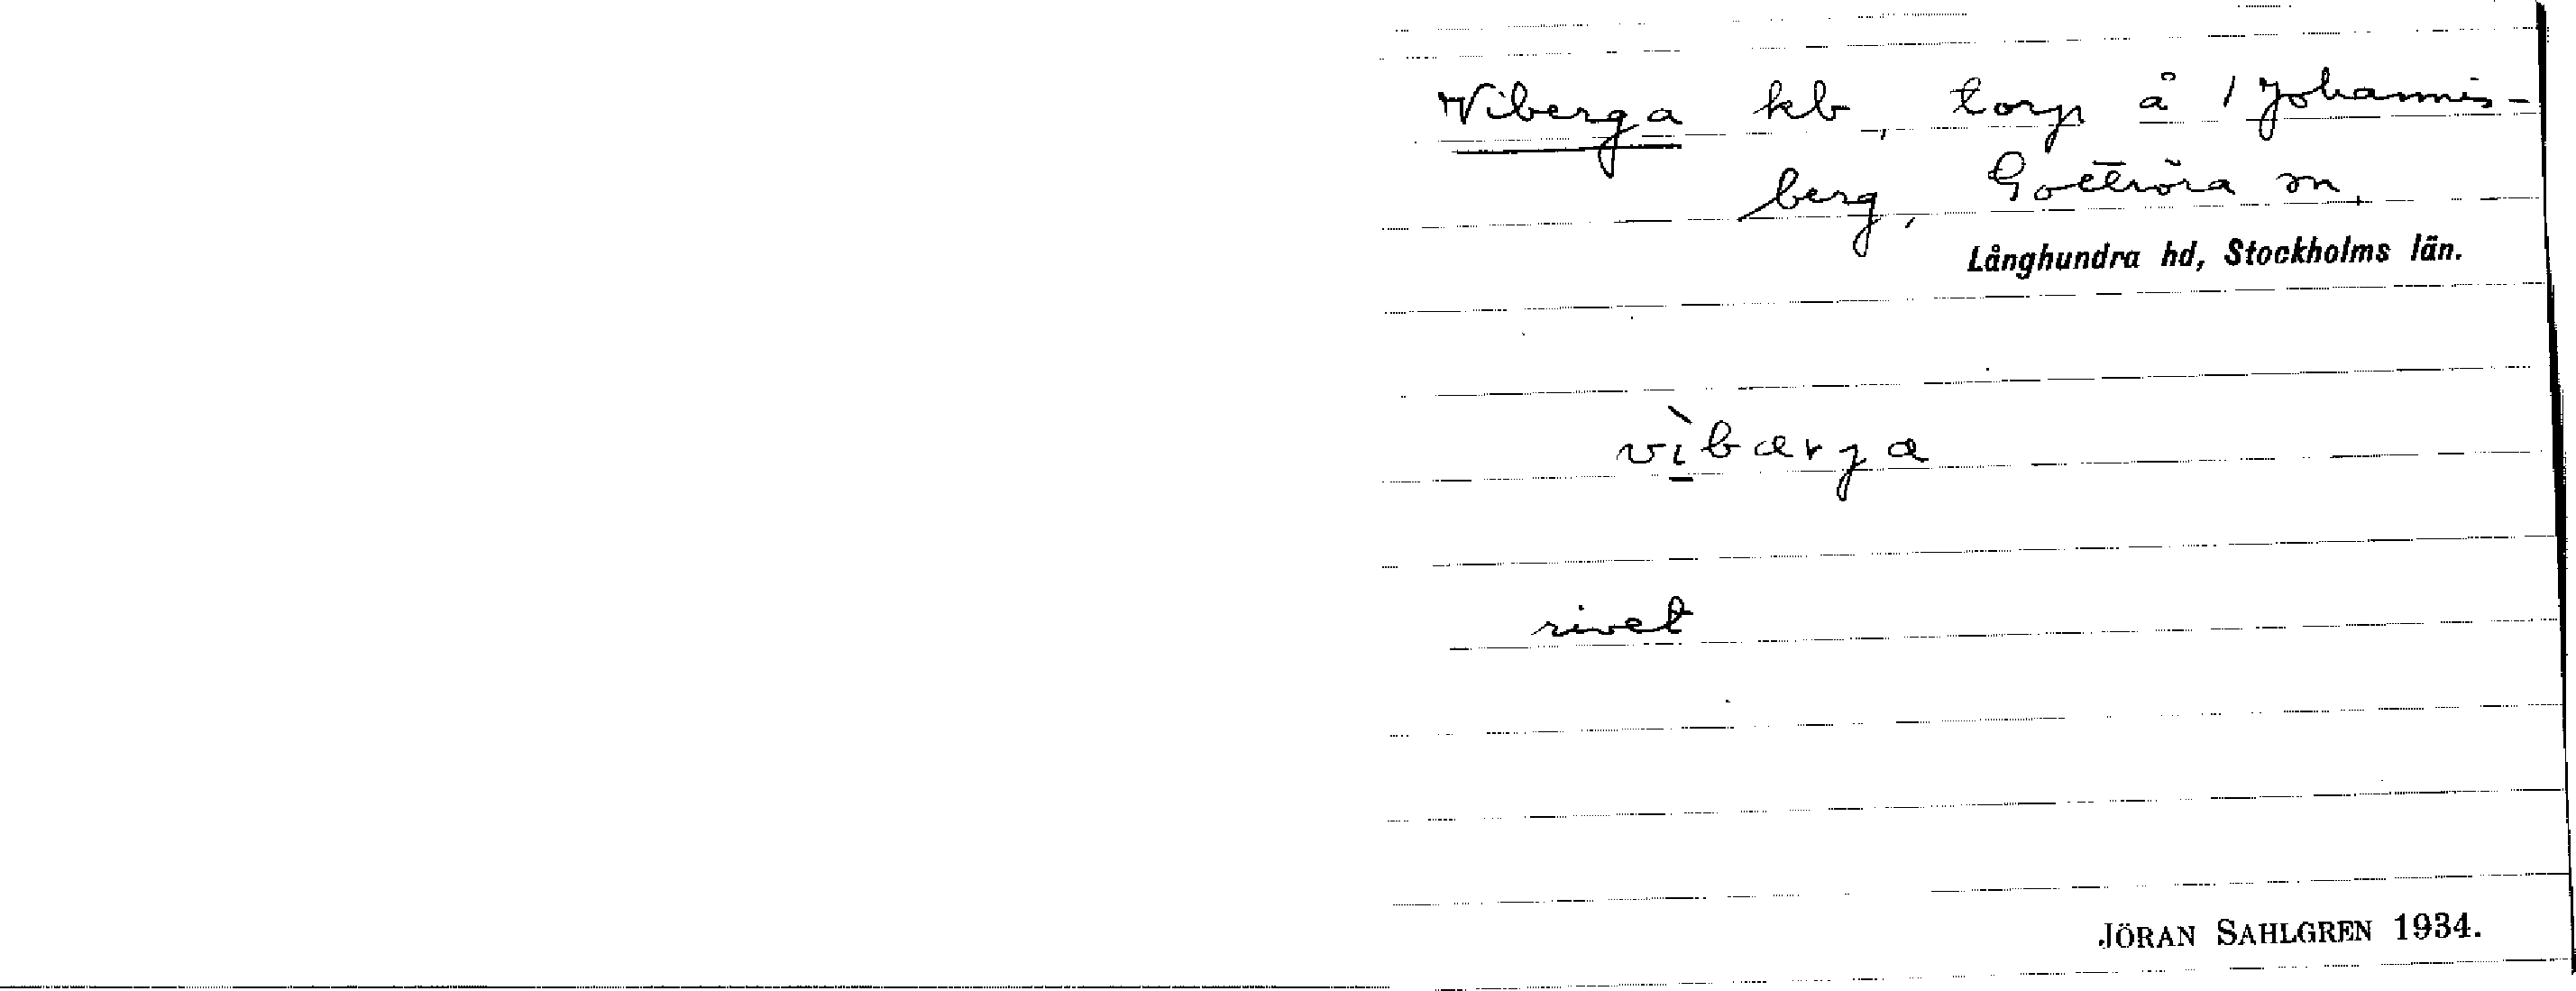 Viberga kb, torp å 1 Johannis-
berg, Gottröra sn.
Långhundra hd, Stockholms län.
vìbærja
rivet
JÖRAN SAHLGREN 1934.